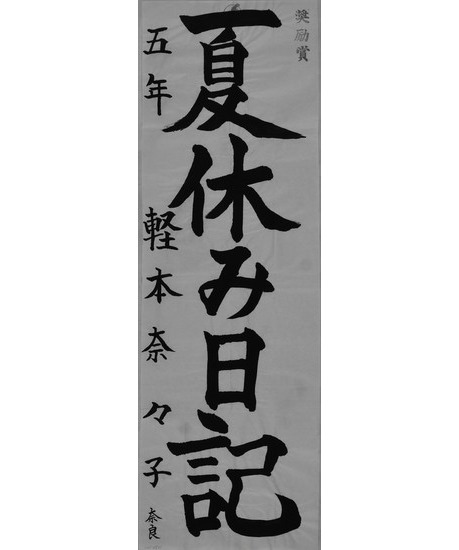 奨励賞
夏休み日記
五年 軽本奈々子
奈良